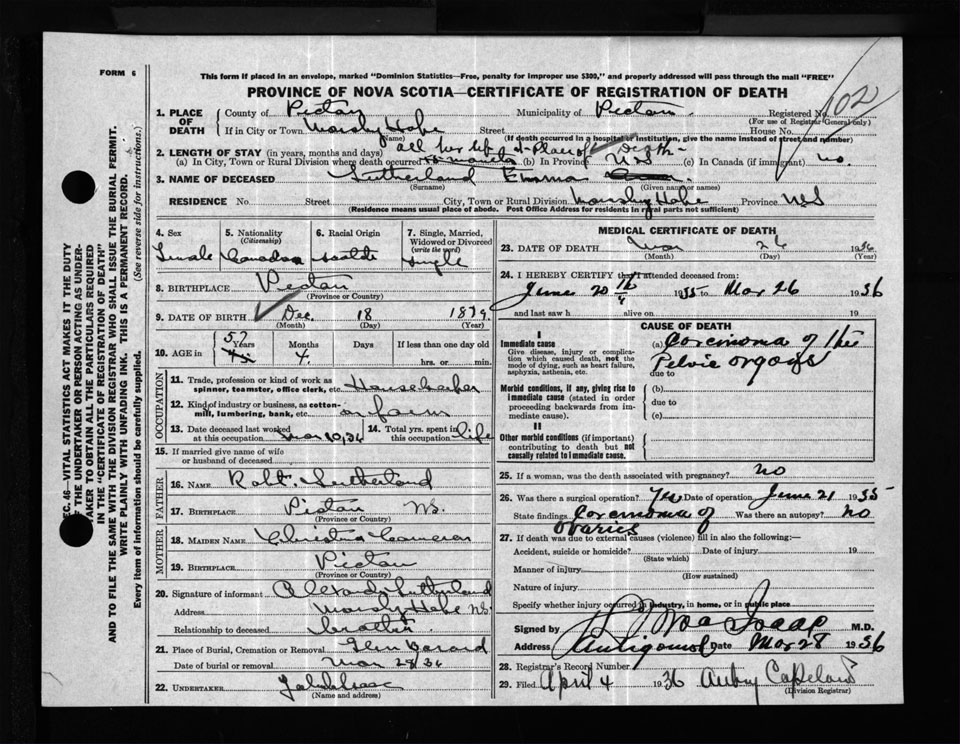 FORM 6
This form if placed in an envelope, marked "Dominion Statistics—Free, penalty for improper use $300," and properly addressed will pass through the mail "FREE"
PROVINCE OF NOVA SCOTIA—CERTIFICATE OF REGISTRATION OF DEATH
1. PLACE OF DEATH
County of Pictou Municipality of Pictou Registered No. 102
(For use of Registrar General only)
If in City or Town Marshy Hope Street House No.
(Name) (If death occurred in a hospital or institution, give the name instead of street and number)
2. LENGTH OF STAY (in years, months and days) all her life Place of Death
(a) In City, Town or Rural Division where death occurred (b) In Province N.S (c) In Canada (if immigrant) no
3. NAME OF DECEASED Sutherland Emma
(Surname) (Given name or names)
RESIDENCE No Street City, Town or Rural Division Marshy Hope Province N.S
(Residence means usual place of abode. Post Office Address for residents in rural parts not sufficient)
4. Sex Female
5. Nationality (Citizenship) Canadian
6. Racial Origin
7. Single, Married, Widowed or Divorced (write the word) Single
8. BIRTHPLACE Pictou
(Province or Country)
9. DATE OF BIRTH Dec. 18 1879
(Month) (Day) (Year)
10. AGE in Years 57 Months 4 Days If less than one day old hrs. or min.
OCCUPATION
11. Trade, profession or kind of work as spinner, teamster, office clerk, etc. Housekeeper
12. Kind of industry or business, as cotton-mill, lumbering, bank, etc. on farm
13. Date deceased last worked at this occupation Mar 10, 36
14. Total yrs. spent in this occupation life
15. If married give name of wife or husband of deceased
FATHER
16. NAME Robt. Sutherland
17. BIRTHPLACE Pictou N.S.
(Province or Country)
MOTHER
18. MAIDEN NAME Christina Cameron
19. BIRTHPLACE Pictou
(Province or Country)
20. Signature of informant Sutherland
Address Marshy Hope N.S.
Relationship to deceased brother
21. Place of Burial, Cremation or Removal Glen
Date of burial or removal Mar 28 36
22. UNDERTAKER
(Name and address)
MEDICAL CERTIFICATE OF DEATH
23. DATE OF DEATH Mar 26 1936
(Month) (Day) (Year)
24. I HEREBY CERTIFY that I attended deceased from:
June 20 1935 to Mar 26 1936
and last saw h alive on 19
CAUSE OF DEATH
I
Immediate cause
Give disease, injury or complication which caused death, not the mode of dying, such as heart failure, asphyxia, asthenia, etc.
(a) Corcinoma of the Pelvic organs
due to
Morbid conditions, if any, giving rise to immediate cause (stated in order proceeding backwards from immediate cause).
(b)
due to
(c)
II
Other morbid conditions (if important) contributing to death but not causally related to immediate cause.
25. If a woman, was the death associated with pregnancy? no
26. Was there a surgical operation? Yes Date of operation June 21 1935
State findings Corcinoma of Ovaries Was there an autopsy? no
27. If death was due to external causes (violence) fill in also the following:—
Accident, suicide or homicide? Date of injury 19
(State which)
Manner of injury
(How sustained)
Nature of injury
Specify whether injury occurred in industry, in home, or in public place
Signed by M.D.
Address Antigonish Date Mar 28 1936
28. Registrar's Record Number
29. Filed April 4 1936 Aubrey Copeland
(Division Registrar)
SEC. 46—VITAL STATISTICS ACT MAKES IT THE DUTY
OF THE UNDERTAKER OR PERSON ACTING AS UNDER-
TAKER TO OBTAIN ALL THE PARTICULARS REQUIRED
IN THE "CERTIFICATE OF REGISTRATION OF DEATH"
AND TO FILE THE SAME WITH THE DIVISION REGISTRAR WHO SHALL ISSUE THE BURIAL PERMIT.
WRITE PLAINLY WITH UNFADING INK. THIS IS A PERMANENT RECORD.
Every item of information should be carefully supplied. (See reverse side for instructions.)